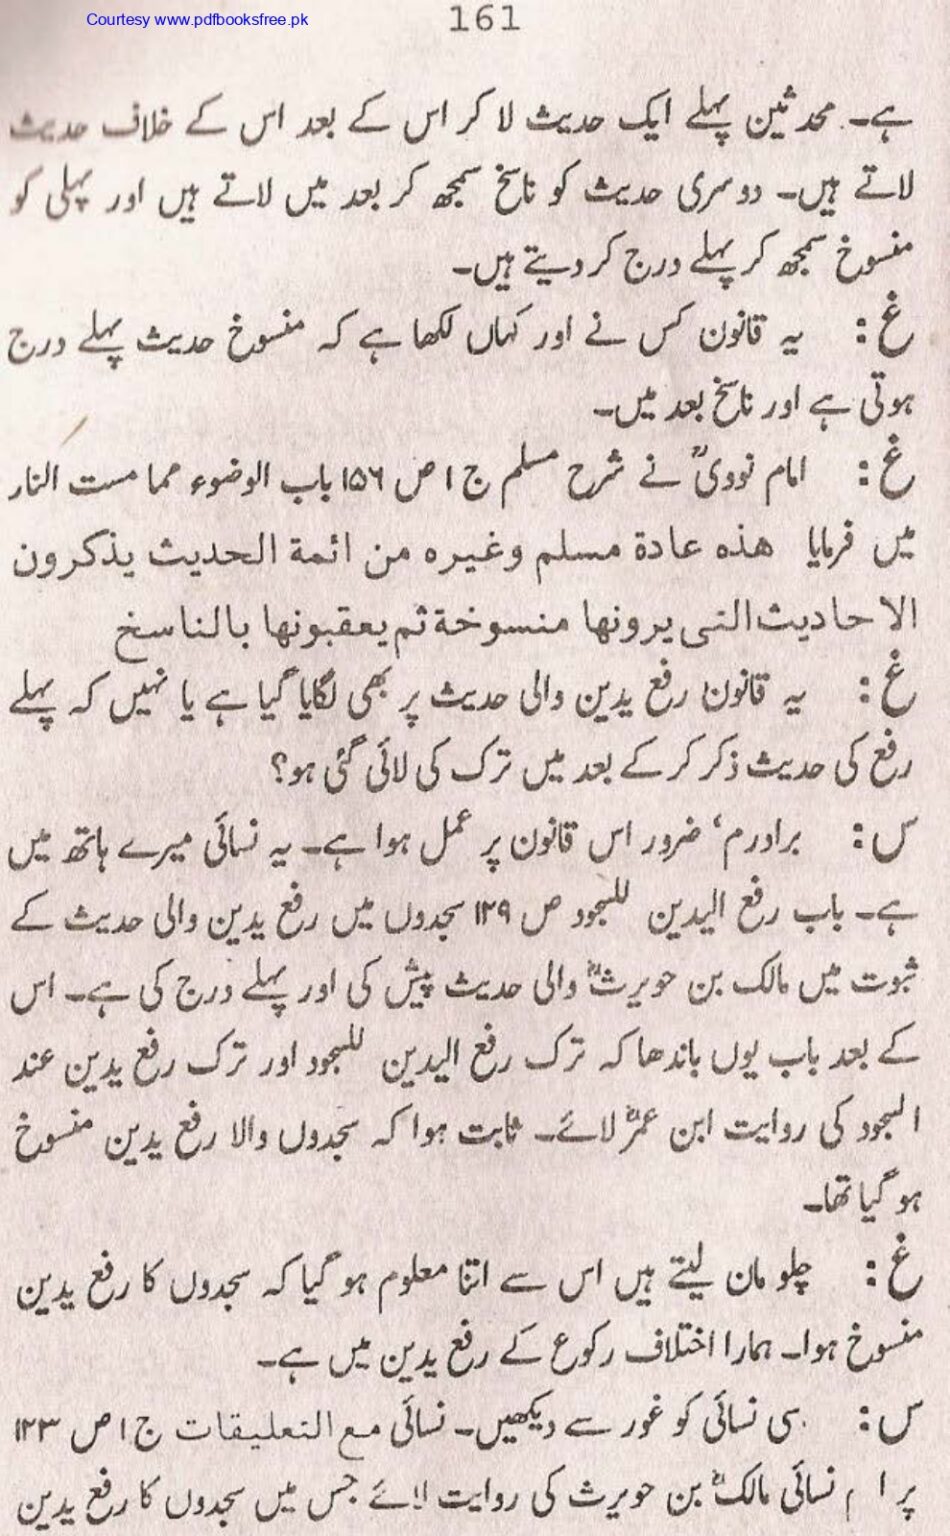 Courtesy www.pdfbooksfree.pk
161
ہے۔ محدثین پہلے ایک حدیث لا کر اس کے بعد اس کے خلاف حدیث
لاتے ہیں۔ دوسری حدیث کو ناسخ سمجھ کر بعد میں لاتے ہیں اور پہلی کو
منسوخ سمجھ کر پہلے درج کر دیتے ہیں۔
غ: یہ قانون کس نے اور کہاں لکھا ہے کہ منسوخ حدیث پہلے درج
ہوتی ہے اور ناسخ بعد میں۔
غ: امام نوویؒ نے شرح مسلم ج ۱ ص ۱۵۶ باب الوضوء مما مست النار
میں فرمایا هذه عادة مسلم وغيره من ائمة الحديث يذكرون
الاحاديث التى يرونها منسوخة ثم يعقبونها بالناسخ
غ: یہ قانون رفع یدین والی حدیث پر بھی لگایا گیا ہے یا نہیں کہ پہلے
رفع کی حدیث ذکر کر کے بعد میں ترک کی لائی گئی ہو؟
س: برادرم، ضرور اس قانون پر عمل ہوا ہے۔ یہ نسائی میرے ہاتھ میں
ہے۔ باب رفع الیدین للسجود ص ۱۲۹ سجدوں میں رفع یدین والی حدیث کے
ثبوت میں مالک بن حویرثؓ والی حدیث پیش کی اور پہلے درج کی ہے۔ اس
کے بعد باب یوں باندھا کہ ترک رفع الیدین للسجود اور ترک رفع یدین عند
السجود کی روایت ابن عمرؓ لائے۔ ثابت ہوا کہ سجدوں والا رفع یدین منسوخ
ہو گیا تھا۔
غ: چلو مان لیتے ہیں اس سے اتنا معلوم ہو گیا کہ سجدوں کا رفع یدین
منسوخ ہوا۔ ہمارا اختلاف رکوع کے رفع یدین میں ہے۔
س: سی نسائی کو غور سے دیکھیں۔ نسائی مع التعليقات ج ۱ ص ۱۲۳
پر ا م نسائی مالکؓ بن حویرث کی روایت لائے جس میں سجدوں کا رفع یدین